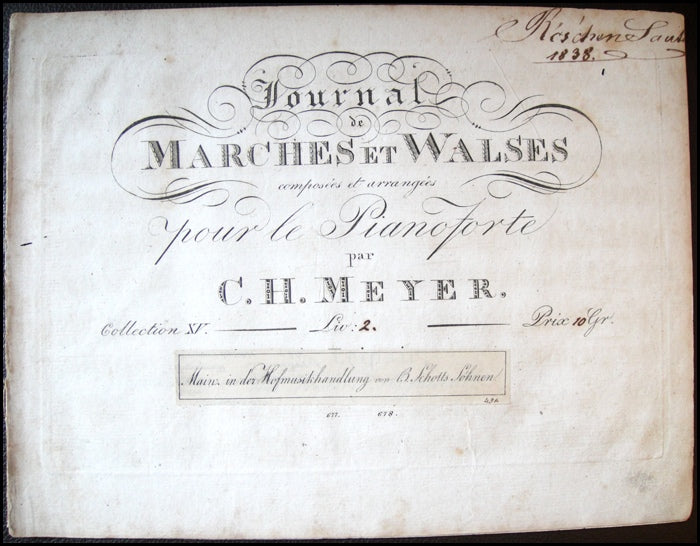 Röschen
1838.
Journal
de
MARCHES ET WALSES
composées et arrangées
pour le Pianoforte
par
C. H. MEYER.
Collection XV. Liv: 2. Prix 10 Gr.
Mainz in der Hofmusikhandlung von B. Schotts Söhnen
677. 678.